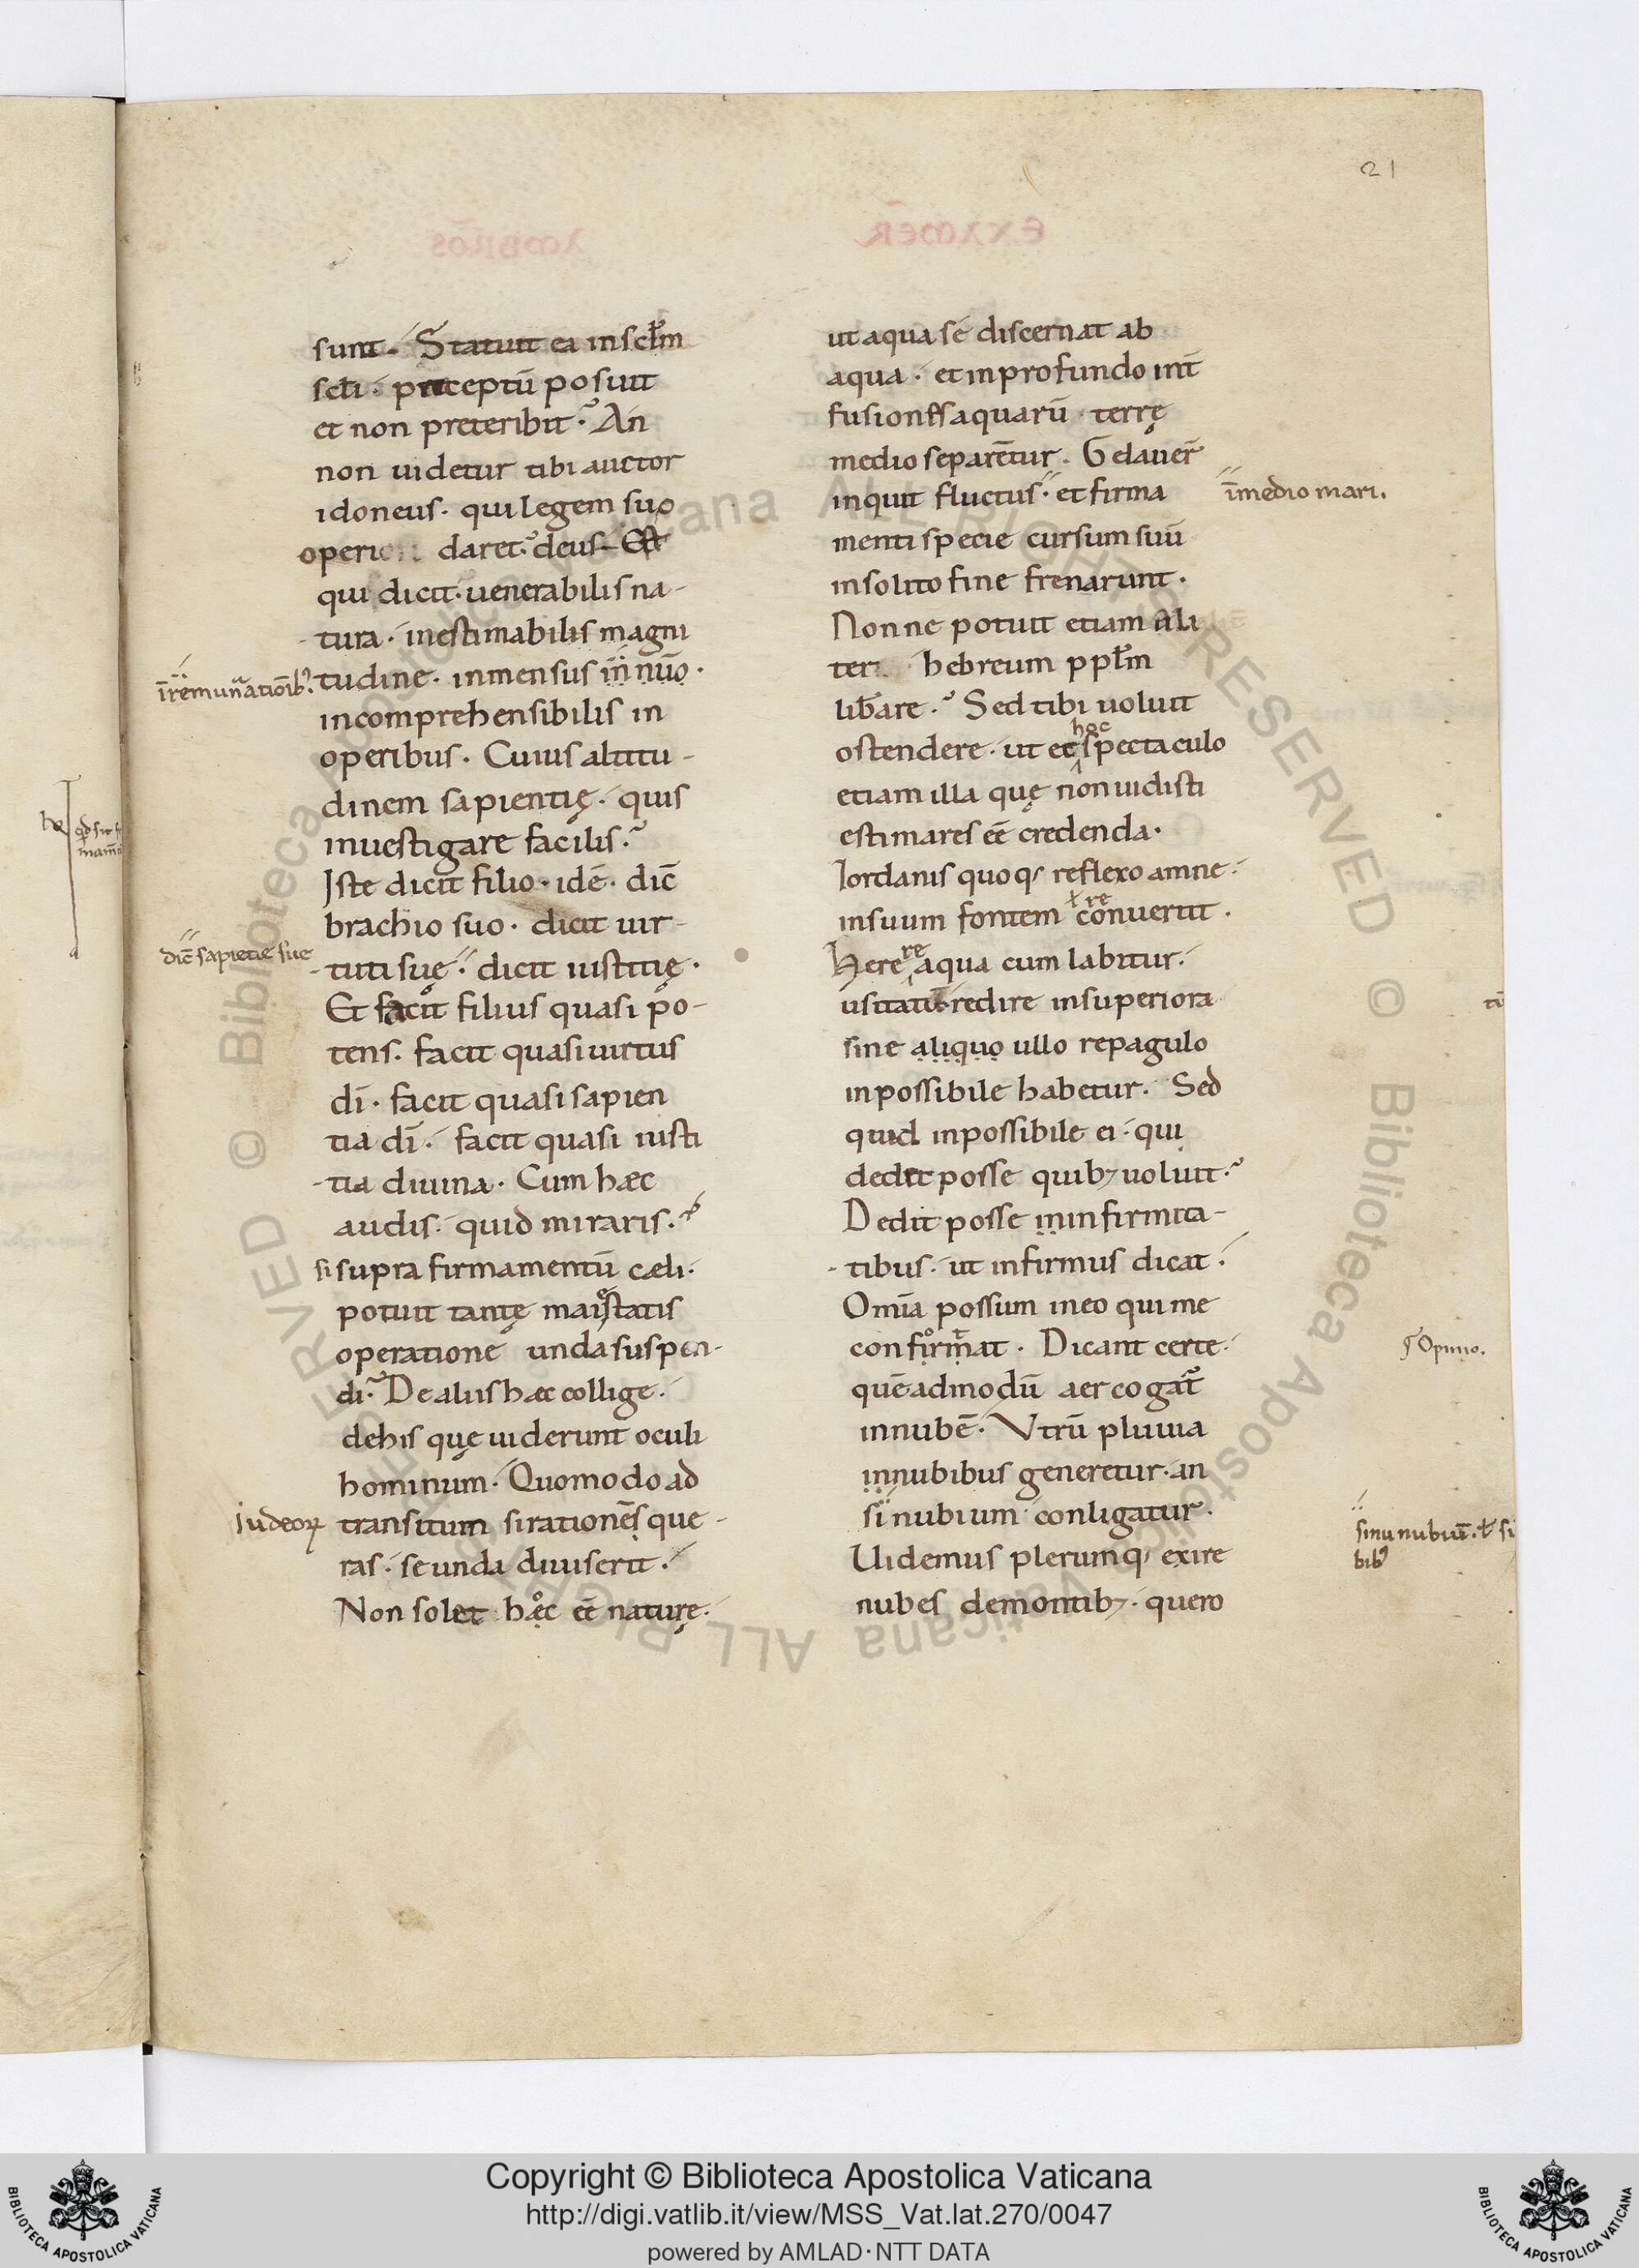 21
sunt. Statuit ea in sclm
scli. preceptū posuit
et non preteribit. An
non uidetur tibi auctor
idoneus. qui legem suo
operi daret. deus. Est
qui dicit. uenerabilis na-
tura. inestimabilis magni
īremun̄atioīb;. tudine. inmensus in nūo.
incomprehensibilis in
operibus. Cuius altitu-
dinem sapientię. quis
inuestigare facilis.
Iste dicit filio. idē. dic̄
brachio suo. dicit uir-
dic̄ sapietie sue tuti suę. dicit iustitię.
Et facit filius quasi po-
tens. facit quasi uirtus
dī. facit quasi sapien
tia dī. facit quasi iusti
tia diuina. Cum hæc
audis. quid miraris.
si supra firmamentū cæli.
potuit tantę maiestatis
operatione unda suspen-
di. De aliis hæc collige.
dehis quę uiderunt oculi
hominum. Quomodo ad
iudeoꝝ transitum si rationēs que-
ras. se unda diuiserit.
Non solet hæc eē naturę.
ut aqua se discernat ab
aqua. et in profundo int̄
fusiones aquarū terrę
medio separētur. Gelauer̄
inquit fluctus. et firma īmedio mari.
menti specie cursum suū
insolito fine frenarunt.
Nonne potuit etiam ali
ter hebreum pplm
lib̄are. Sed tibi uoluit
hoc
ostendere. ut et spectaculo
etiam illa quę non uidisti
estimares eē credenda.
Iordanis quoq; reflexo amne.
ł re
insuum fontem conuertit.
re
Here aqua cum labitur.
usitatū redire insuperiora
sine aliquo ullo repagulo
inpossibile habetur. Sed
quid inpossibile ei. qui
dedit posse quib; uoluit.
Dedit posse in infirmita-
tibus. ut infirmus dicat.
Omīa possum ineo qui me
confirmat. Dicant certe. Opinio.
quēadmodū aer cogat̄
innubē. Vtrū pluuia
innubibus generetur. an
si nubium conligatur. sinu nubiū. ł si
Uidemus plerumq; exire bib;
nubes demontib;. quero
Copyright © Biblioteca Apostolica Vaticana
http://digi.vatlib.it/view/MSS_Vat.lat.270/0047
powered by AMLAD·NTT DATA
BIBLIOTECA APOSTOLICA VATICANA
BIBLIOTECA APOSTOLICA VATICANA